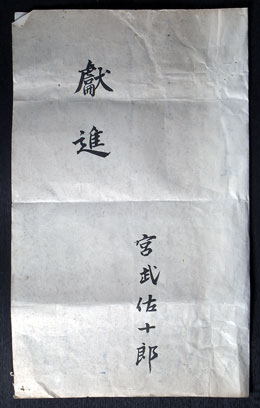 獻進
宮武佐十郎